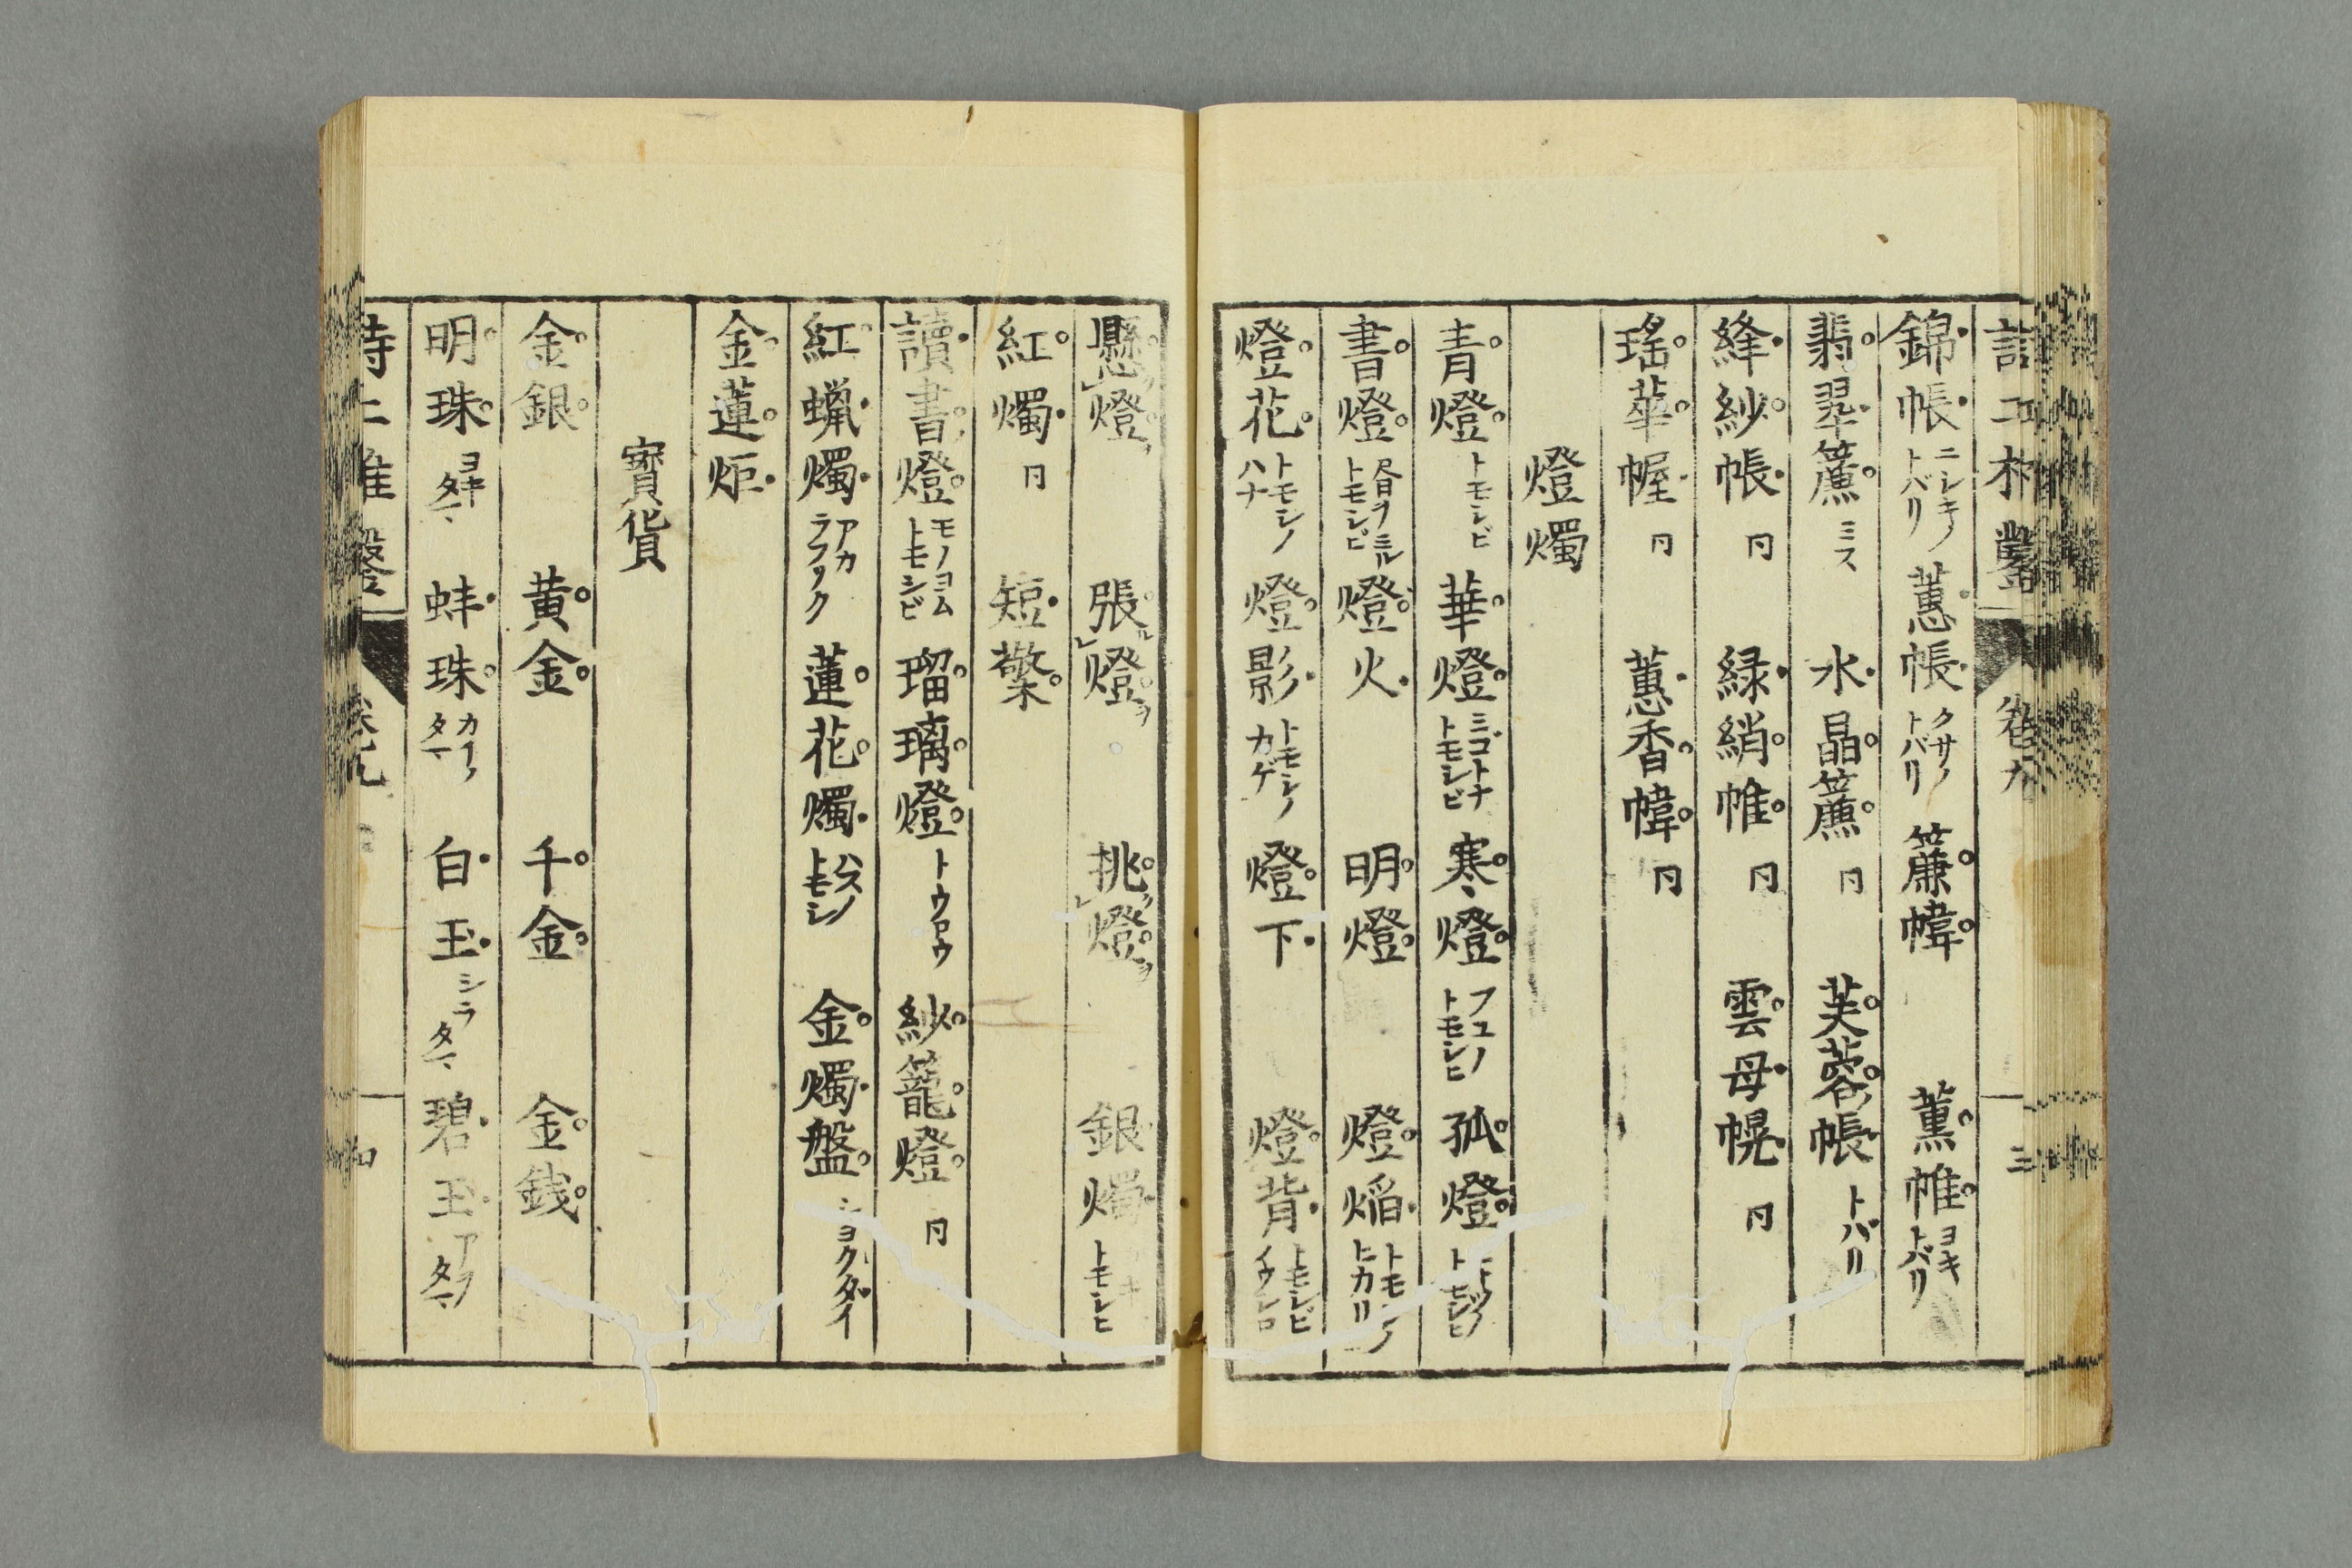 錦帳 ニシキノトバリ 蕙帳 クサノトバリ 簾幃 薫帷 ヨキトバリ
翡翠簾 ミス 水晶簾 同 芙蓉帳 トバリ
絳紗帳 同 緑綃帷 同 雲母幌 同
瑤華幄 同 蕙香幃 同
燈燭
青燈 トモシビ 華燈 ミゴトナトモシビ 寒燈 フユノトモシヒ 孤燈 トモシヒ
書燈 トモシビ 燈火 明燈 燈焔 ヒカリ
燈花 トモシノハナ 燈影 トモシノカゲ 燈下 燈背 トモシビ
三
懸燈 張燈 挑燈 銀燭 トモシヒ
紅燭 同 短檠
讀書燈 モノヨムトモシビ 瑠璃燈 トウロウ 紗籠燈 同
紅蝋燭 アカラフソク 蓮花燭 ハスノトモシ 金燭盤 ショクダイ
金蓮炬
寳貨
金銀 黄金 千金 金銭
明珠 ヨキタマ 蚌珠 カイノタマ 白玉 シラタマ 碧玉 アヲタマ